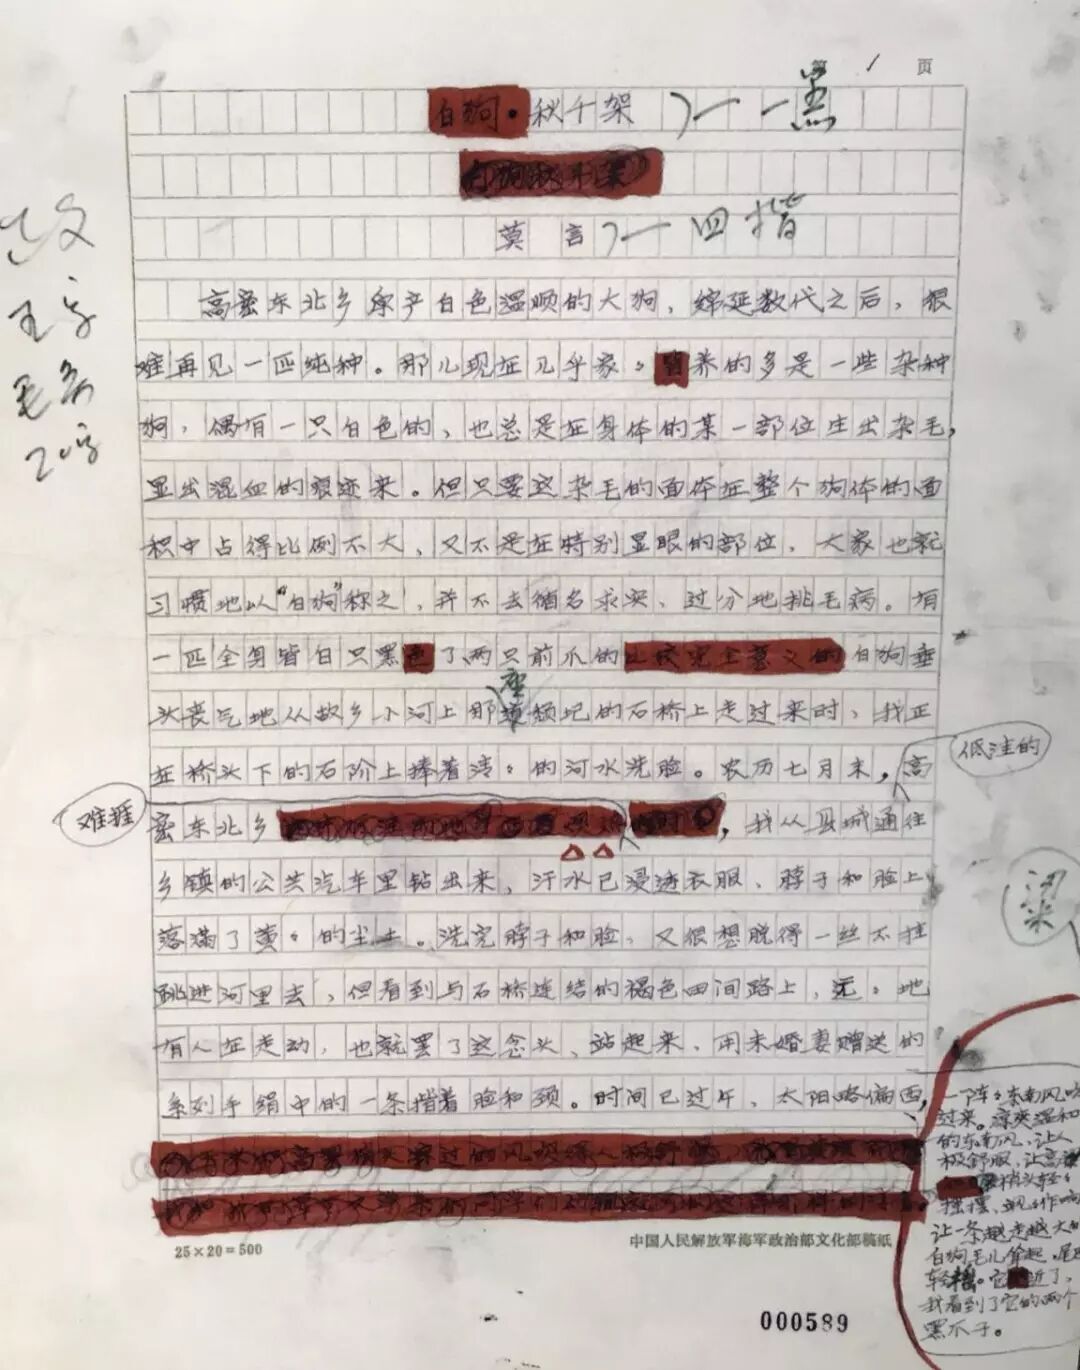 第 1 页
白狗·秋千架 一黑
莫言 一四楷
高密东北乡原产白色温顺的大狗，绵延数代之后，很
难再见一匹纯种。那儿现在几乎家〻养的多是一些杂种
狗，偶有一只白色的，也总是在身体的某一部位生出杂毛，
显出混血的痕迹来。但只要这杂毛的面体在整个狗体的面
积中占得比例不大，又不是在特别显眼的部位，大家也就
习惯地以“白狗”称之，并不去循名求实，过分地挑毛病。有
一匹全身皆白只黑了两只前爪的白狗垂
头丧气地从故乡小河上那座颓圮的石桥上走过来时，我正
在桥头下的石阶上捧着清〻的河水洗脸。农历七月末，低洼的高
密东北乡难捱，我从县城通往
乡镇的公共汽车里钻出来，汗水已浸透衣服，脖子和脸上
落满了黄〻的尘土。洗完脖子和脸，又很想脱得一丝不挂
跳进河里去，但看到与石桥连结的褐色田间路上，远〻地
有人在走动，也就罢了这念头，站起来，用未婚妻赠送的
系列手绢中的一条揩着脸和颈。时间已过午，太阳略偏西，
一阵〻东南风吹
过来。凉爽温和
的东南风，让人
极舒服，让高粱
梢头轻〻
摇摆，
让一条越走越大的
白狗毛儿耸起，尾巴
轻摇。它近了，
我看到了它的两个
黑爪子。
25×20=500
中国人民解放军海军政治部文化部稿纸
000589